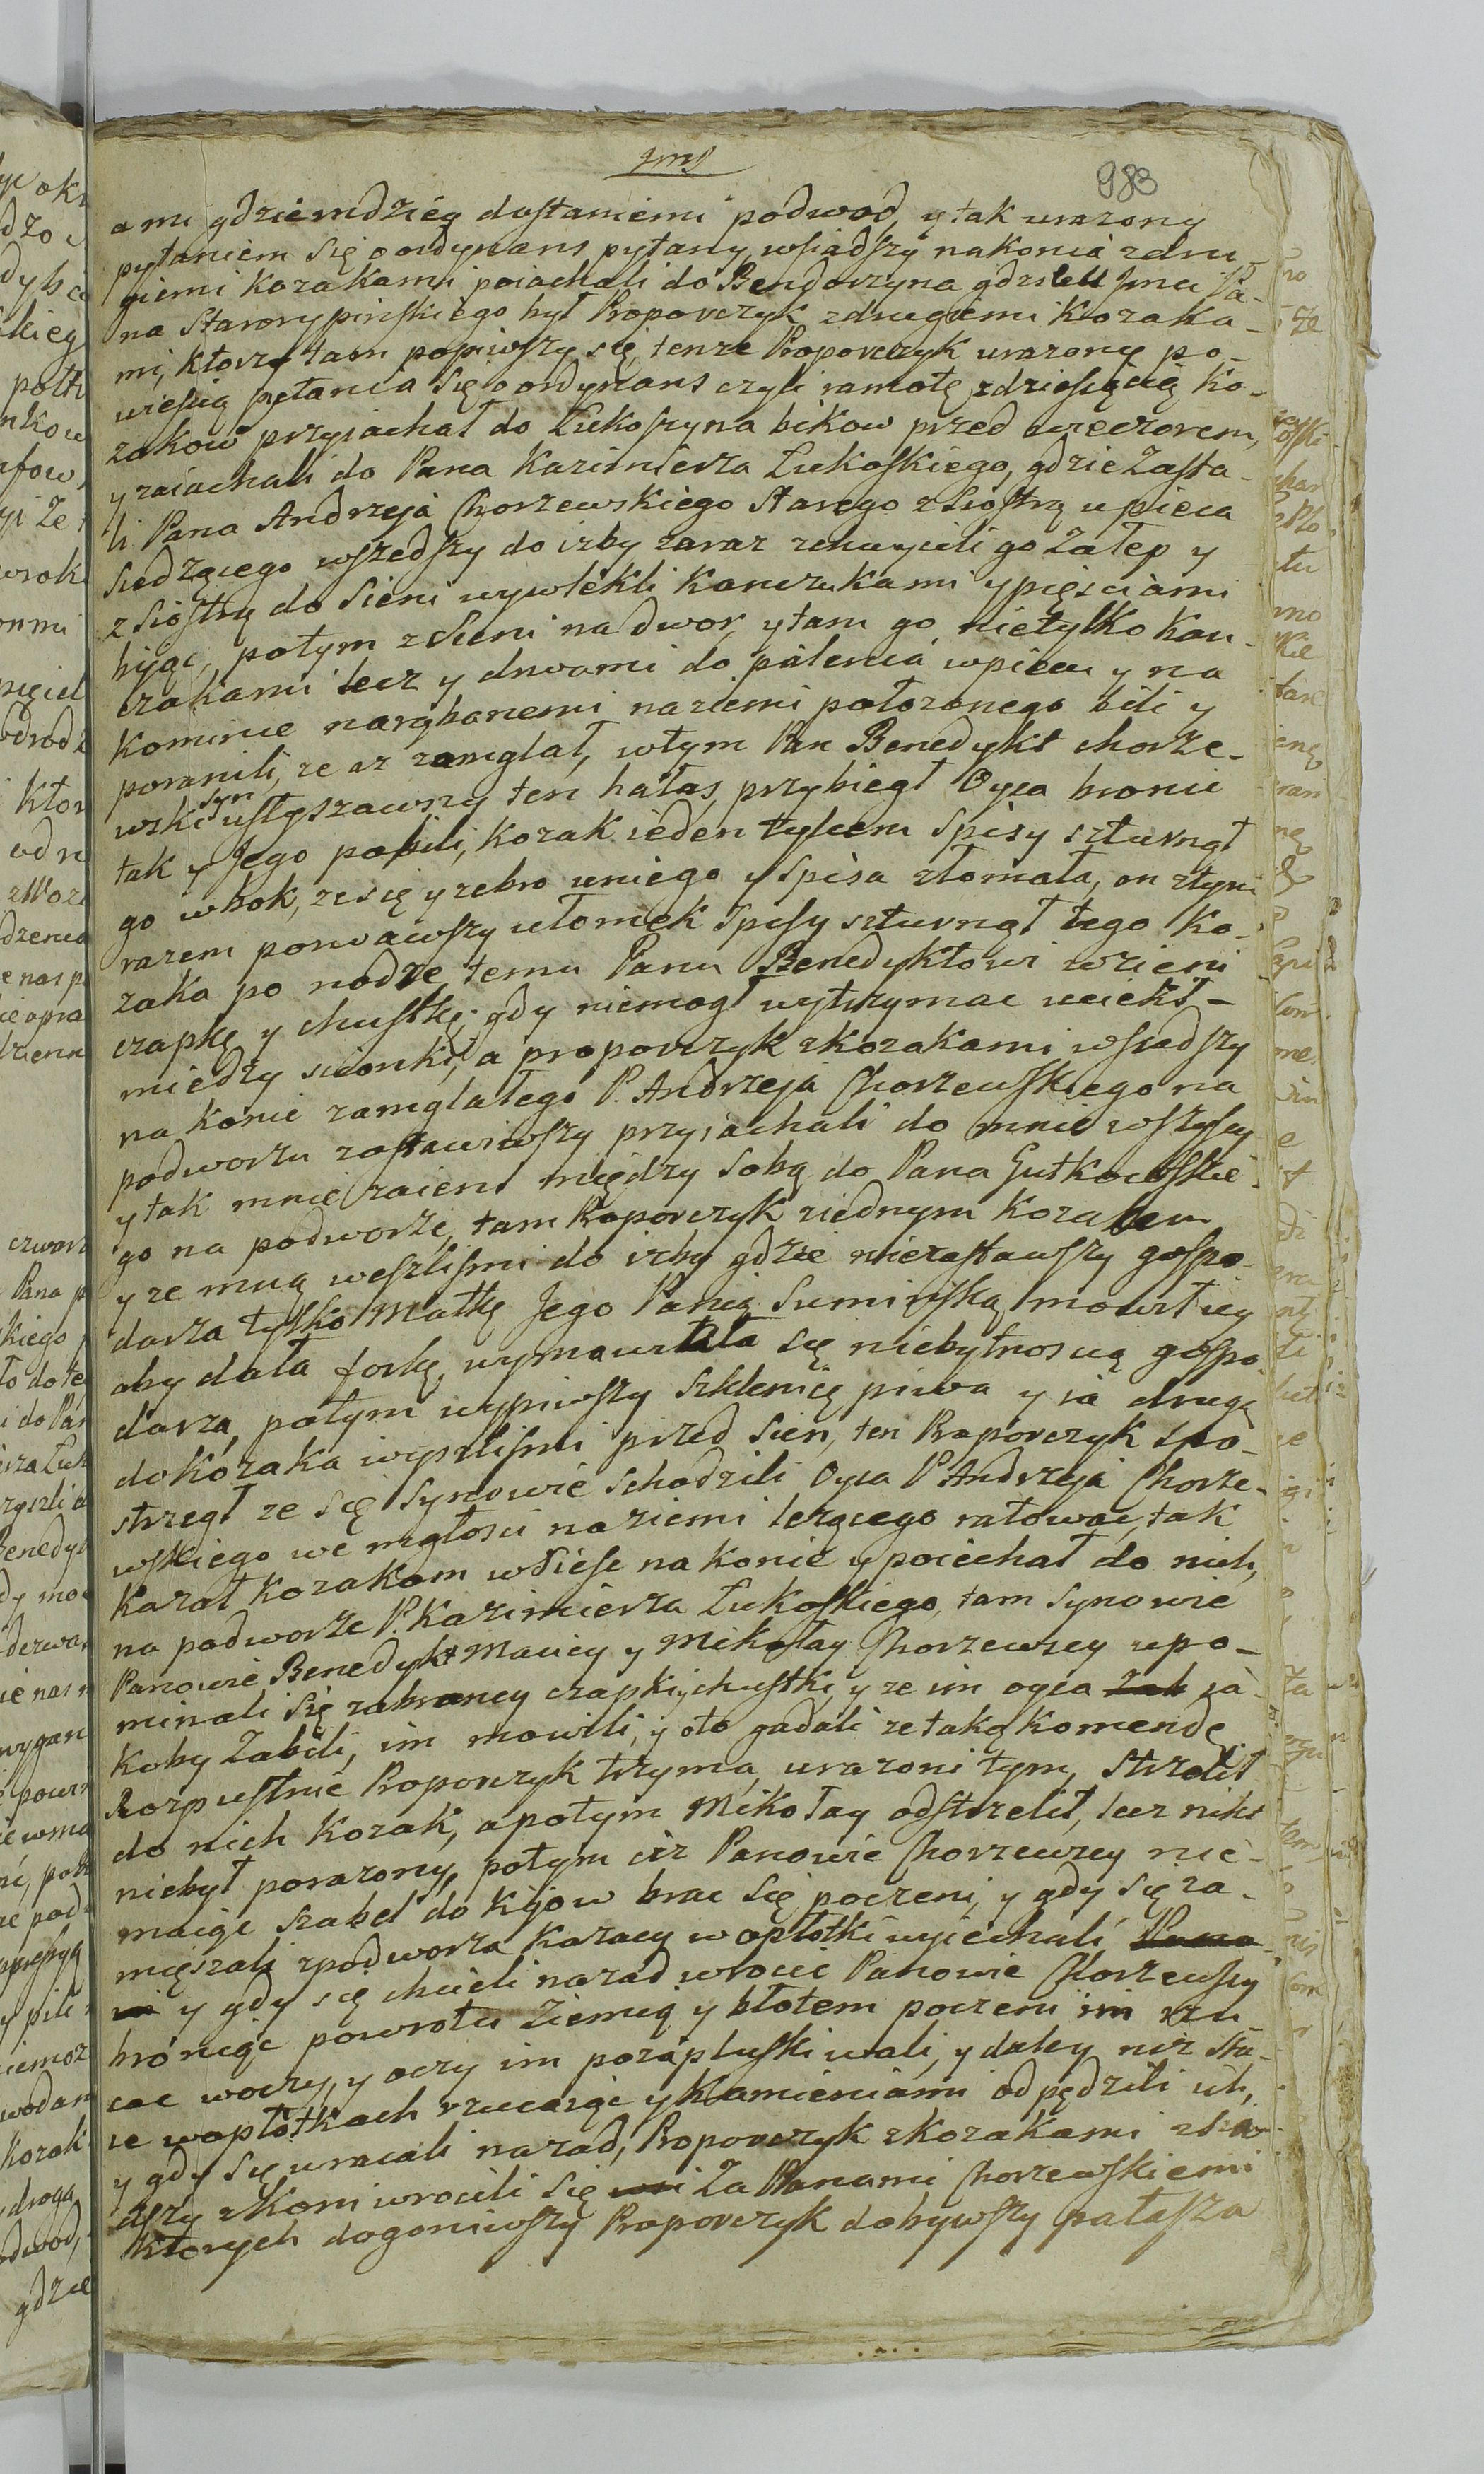 983
a my gdzieindzieg dostaniemi podwod, y tak urazony
pytaniem się o ordynans pytany, wsiadszy nakonia zdru-
giemi kozakami poiachali do Bendorzyna gdzie Jmci Pa-
na Starorypinskiego był Roporczyk zdrugiemi Kozaka-
mi, ktorzy tam popiwszy się, tenze Roporczyk urazony po-
wiescią pytania się o ordynans czyli ramotę zdziesiącią Ko-
zakow przyiachał do Lukoszyna bikow przed wieczorem,
y zaiachali do Pana Kazimierza Lukoskiego, gdzie Zasta-
li Pana Andrzeja Chorzewskiego Starego z Siostrą u pieca
Siedzącego wszedszy do izby zaraz schwycili go Załep y
z Siostrą do Sieni wywlekli Kanczukami y pięsciami
biiąc, potym z Sieni na dwor, y tam go nietylko Kan-
czukami lecz y drwami do palenia w piecu y na
Kominie narąbanemi naziemi połozonego bili y
poranili, ze az zamglał, wtym Pan Benedykt chorze-
wski syn usłyszawszy ten hałas, przybiegł Oyca bronic
tak y Jego pobili, kozak ieden tylcem Spisy szturnął
go wbok, ze się y zebro uniego y Spisa złomała, on ztym
razem porwawszy ułomek Spisy szturnął tego Ko-
zaka po nodze temu Panu Benedyktowi wzieni
czapkę y chustkę; gdy niemogł wytrzymac uciekł
miedzy scionki, a propovczyk zkozakami wsiadszy
na konie zamglałego P. Andrzeja Chorzewskiego na
podworzu zostawiwszy przyiachali do mnie wszyscy
y tak mnie zaieni między Sobą do Pana Gutkowskie-
go na podworze, tam Roporczyk ziednym Kozakiem
y ze mną weszlismi do izby gdzie niezastawszy gospo-
darza tylko Matkę Jego Panią Suminską mowił iey
aby dała forkę, wymawiała się niebytnoscią gospo-
darza, potym wypiwszy Szklenicę piwa y ia drugą
do kozaka wyszlismi przed Sien, ten Roporczyk spo-
strzegł ze się Synowie Schodzili Oyca P. Andrzeja Chorze-
wskiego we mgłosci naziemi lezącego ratowac, tak
Kazał Kozakom wsiesc na konie y pociechał do nich,
na podworze P. Kazimierza Lukoskiego, tam Synowie
Panowie Benedykt Maciey y Mikołay Chorzewscy upo-
minali się zabraney czapki y chustki, y ze im oyca zab ia-
koby Zabili, im mowili, y oto gadali ze taką Komendę
Rozpustnie Roporczyk trzyma, urazoni tym, Strzelił
do nich Kozak, apotym Mikołay odstrzelił, lecz nikt
niebył porazony, potym ciz Panowie Chorzewscy nie-
maiąc szabel do Kijow brac się poczeni, y gdy się za-
mięszali zpodworza Kozacy w opłotki wyiechali,
y gdy się chcieli nazad wrocic Panowie Chorzewscy
broniąc powrotu Ziemią y błotem poczeni im rzu-
cac woczy, y oczy im pozapluskiwali, y daley niz Sta-
ie wopłotkach rzucaiąc y Kamieniami odpędzili ich,
y gdy się wracali nazad, Roporczyk zkozakami zsia-
dszy zkoni wrocili się Za Panami Chorzewskiemi
Ktorych dogoniwszy Roporczyk dobywszy pałasza